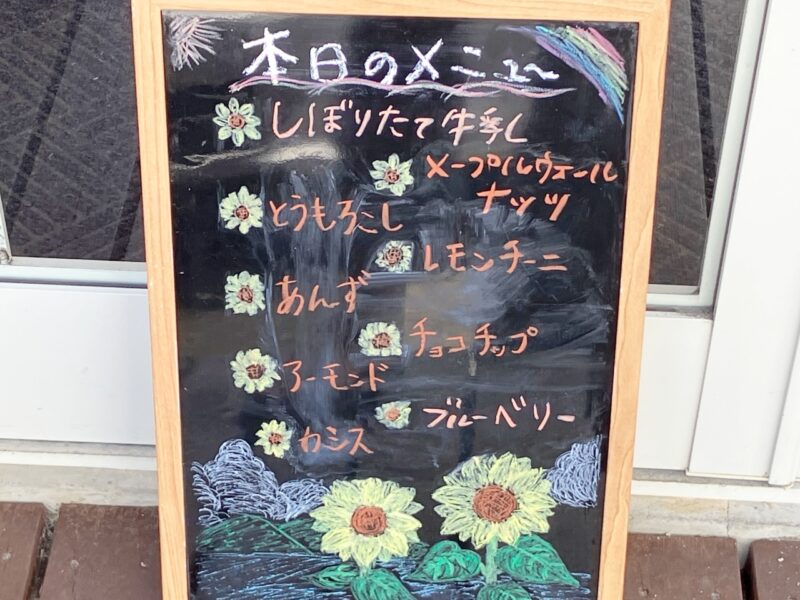 本日のメニュ〜
しぼりたて牛乳
メープルウォール
ナッツ
とうもろこし
レモンチーニ
あんず
チョコチップ
アーモンド
ブルーベリー
カシス